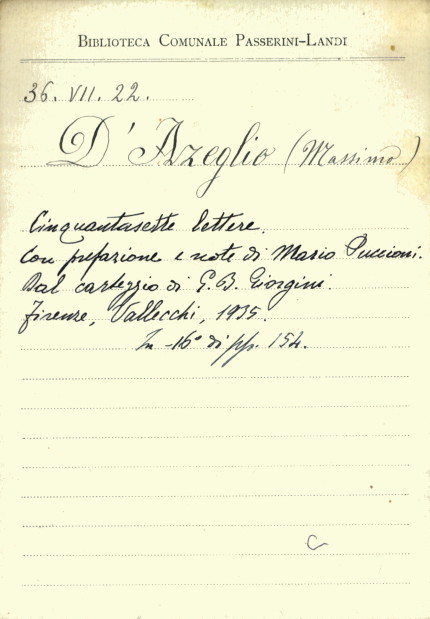 BIBLIOTECA COMUNALE PASSERINI-LANDI
36. VII. 22.
D'Azeglio (Massimo)
Cinquantasette lettere.
Con prefazione e note di Mario Puccioni.
Dal carteggio di G. B. Giorgini.
Firenze, Vallecchi, 1935.
In-16° di pp. 154.
C